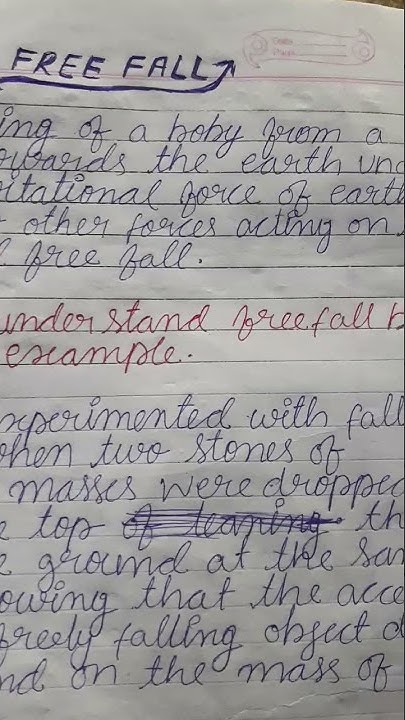 FREE FALL
ing of a boby from a
owards the earth und
itational force of earth
other forces acting on
free fall.
understand freefall b
example.
xperimented with fall
when two stones of
masses were dropped
e top of leaning th
e ground at the sam
owing that the acce
freely falling object d
nd on the mass of